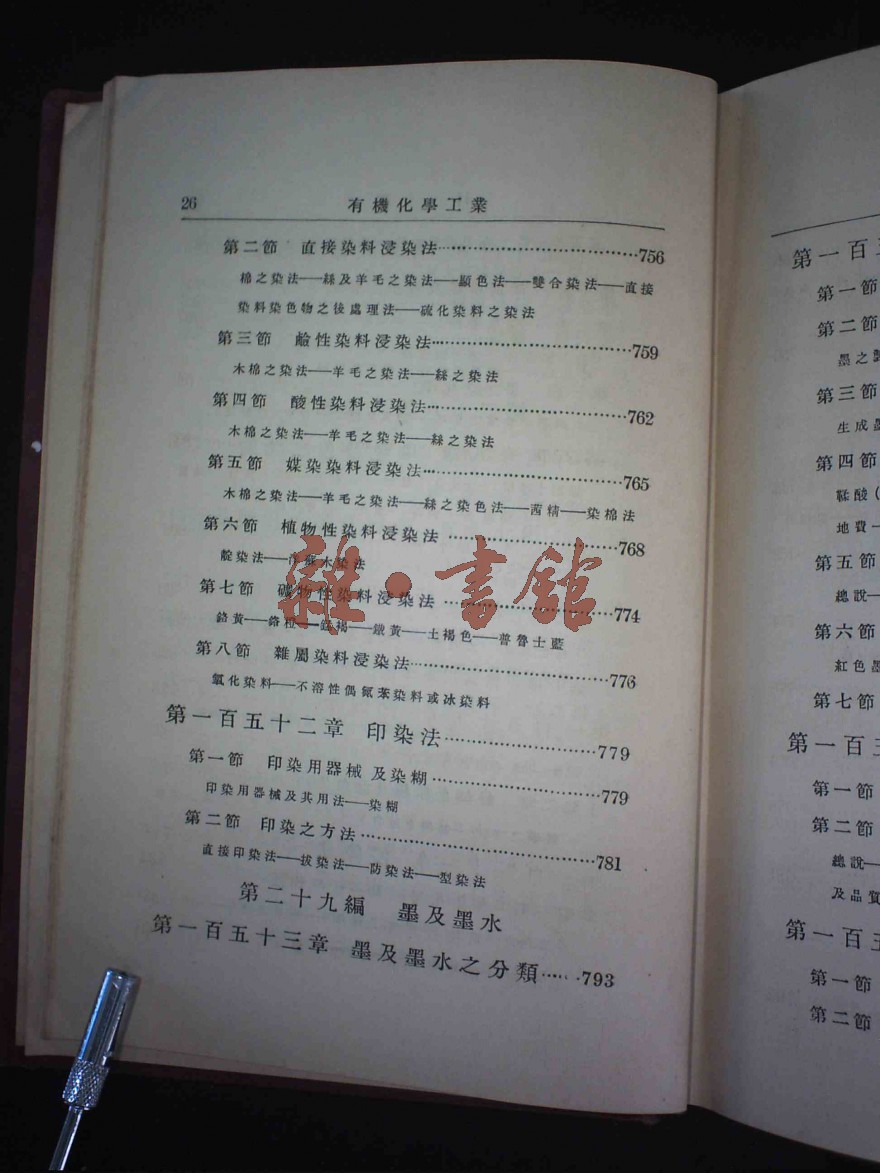 26 有機化學工業
第二節 直接染料浸染法……756
棉之染法——絲及羊毛之染法——顯色法——雙合染法——直接
染料染色物之後處理法——硫化染料之染法
第三節 鹼性染料浸染法……759
木棉之染法——羊毛之染法——絲之染法
第四節 酸性染料浸染法……762
木棉之染法——羊毛之染法——絲之染法
第五節 媒染染料浸染法……765
木棉之染法——羊毛之染法——絲之染色法——茜精——染棉法
第六節 植物性染料浸染法……768
靛染法——蘇木染法
第七節 礦物性染料浸染法……774
鉻黃——鉻橙——褐——鐵黃——土褐色——普魯士藍
第八節 雜屬染料浸染法……776
氧化染料——不溶性偶氮苯染料或冰染料
第一百五十二章 印染法……779
第一節 印染用器械及染糊……779
印染用器械及其用法——染糊
第二節 印染之方法……781
直接印染法——拔染法——防染法——型染法
第二十九編 墨及墨水
第一百五十三章 墨及墨水之分類……793
雜·書館
第一百五
第一節
第二節
墨之製
第三節
生成墨
第四節
鞣酸(
地費一
第五節
總說—
第六節
紅色墨
第七節
第一百五
第一節
第二節
總說—
及品質
第一百五
第一節
第二節